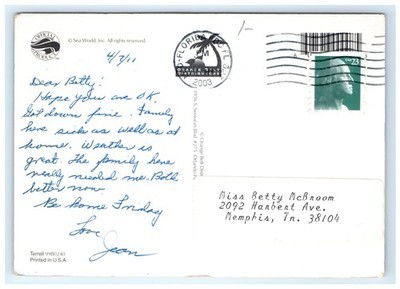 © Sea World, Inc. All rights reserved.
1-
4/7/11
2003
USA 23
Dear Betty!
Hope you are O.K.
Got down fine. Family
here sick as well as at
home. Weather is
great. The family here
really needed me. Both
better now
Be home Sunday
Love
Jean
Miss Betty McBroom
2092 Harbert Ave.
Memphis, Tn. 38104
Printed in U.S.A.